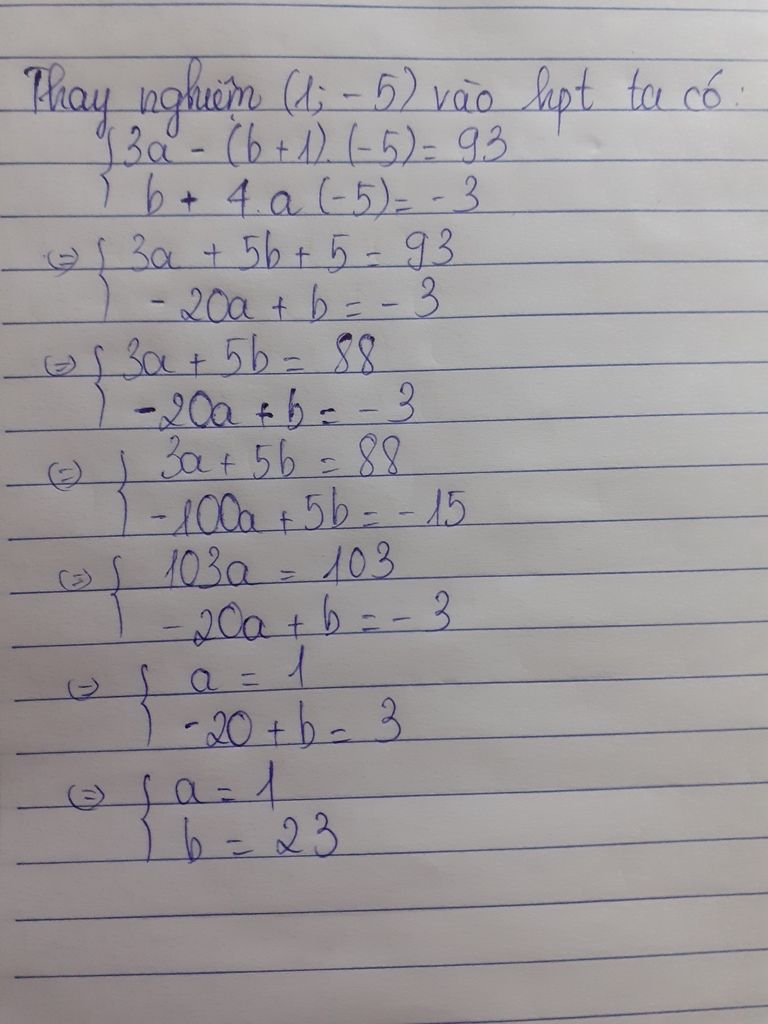 Thay nghiệm (1; -5) vào hpt ta có:
{ 3a - (b+1).(-5) = 93
b + 4.a(-5) = -3
(=) { 3a + 5b + 5 = 93
-20a + b = -3
(=) { 3a + 5b = 88
-20a + b = -3
(=) { 3a + 5b = 88
-100a + 5b = -15
(=) { 103a = 103
-20a + b = -3
(=) { a = 1
-20 + b = 3
(=) { a = 1
b = 23